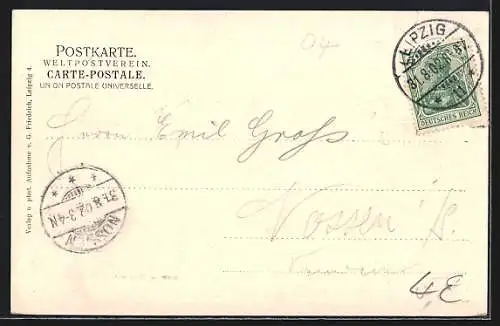 POSTKARTE.
WELTPOSTVEREIN.
CARTE-POSTALE.
UNION POSTALE UNIVERSELLE.
Verlag u. phot. Aufnahme v. G. Friedrich, Leipzig 4.
LEIPZIG
31.8.02
DEUTSCHES REICH
Herrn Emil Groß
Nossen i/S.
NOSSEN
31.8.02.3-4N
4E